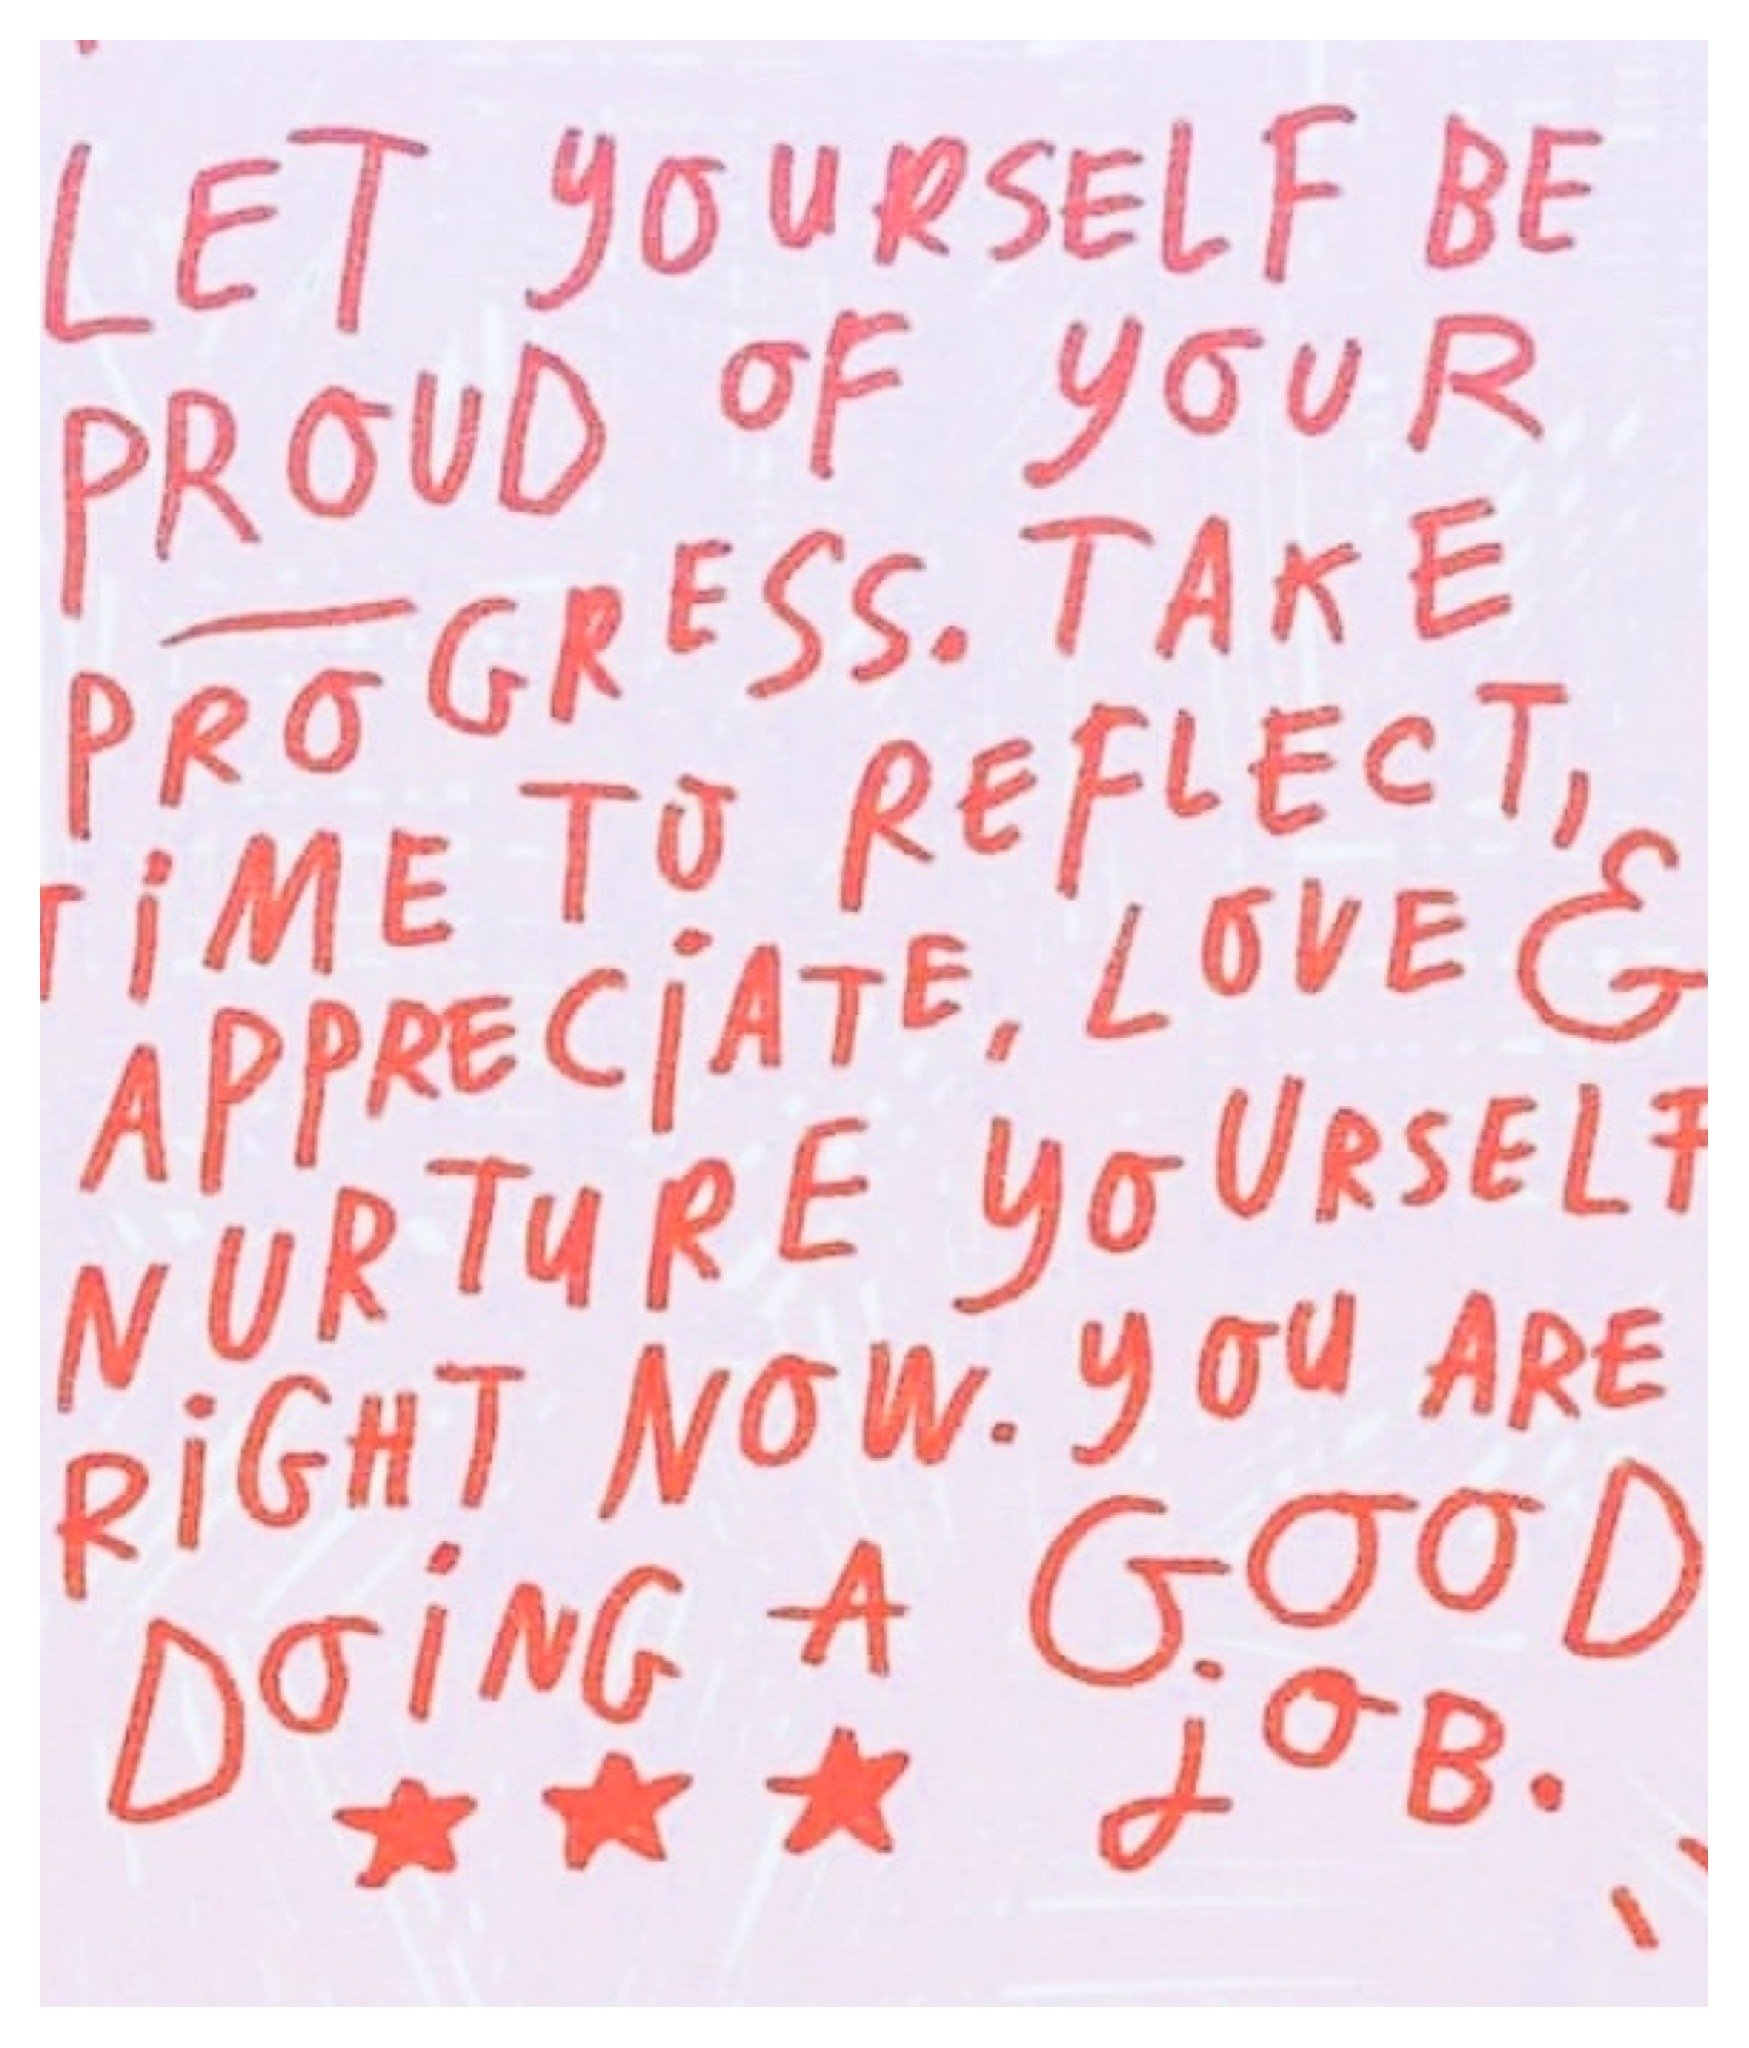 LET YOURSELF BE
PROUD OF YOUR
PROGRESS. TAKE
TiME TO REFLECT,
APPRECiATE, LOVE &
NURTURE YOURSELF
RiGHT NOW. YOU ARE
DOiNG A GOOD
jOB.